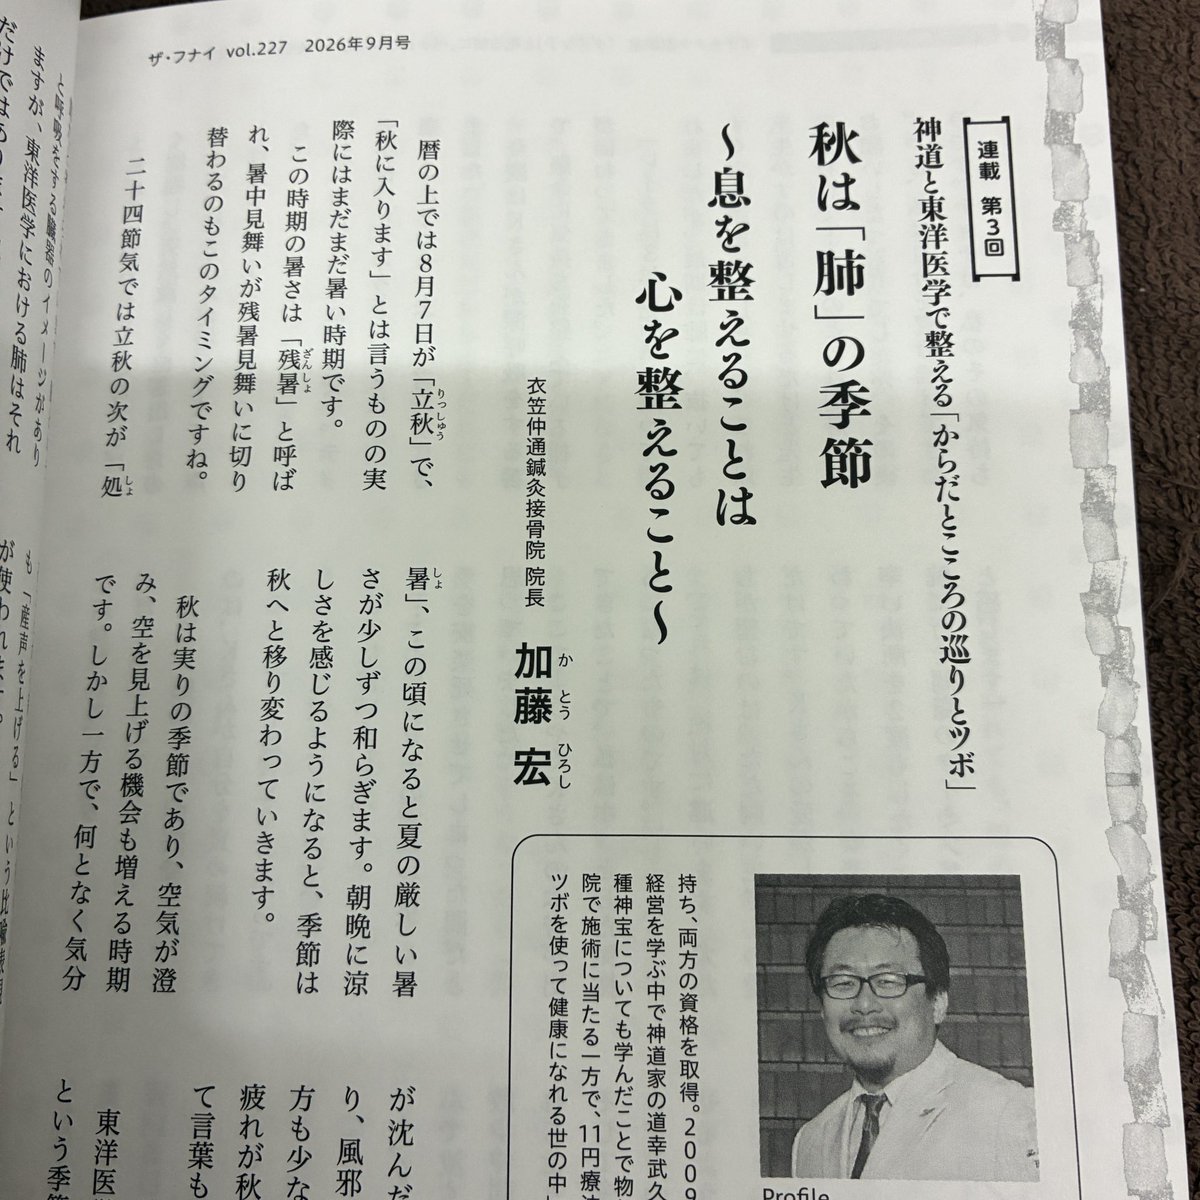 ザ・フナイ vol.227 2026年9月号
連載 第3回
神道と東洋医学で整える「からだとこころの巡りとツボ」
秋は「肺」の季節
～息を整えることは
心を整えること～
衣笠仲通鍼灸接骨院 院長
加藤 宏
かとう ひろし
暦の上では8月7日が「立秋」で、
りっしゅう
「秋に入ります」とは言うものの実
際にはまだまだ暑い時期です。
この時期の暑さは「残暑」と呼ば
ざんしょ
れ、暑中見舞いが残暑見舞いに切り
替わるのもこのタイミングですね。
二十四節気では立秋の次が「処
しょ
暑」、この頃になると夏の厳しい暑
しょ
さが少しずつ和らぎます。朝晩に涼
しさを感じるようになると、季節は
秋へと移り変わっていきます。
秋は実りの季節であり、空気が澄
み、空を見上げる機会も増える時期
です。しかし一方で、何となく気分
が沈んだ
り、風邪
方も少な
疲れが秋
て言葉も
東洋医
という季
持ち、両方の資格を取得。2009
経営を学ぶ中で神道家の道幸武久
種神宝についても学んだことで物
院で施術に当たる一方で、11円療法
ツボを使って健康になれる世の中
Profile
と呼吸をする臓器のイメージがあり
ますが、東洋医学における肺はそれ
だけではありません
も「産声を上げる」という比喩表現
が使われます。